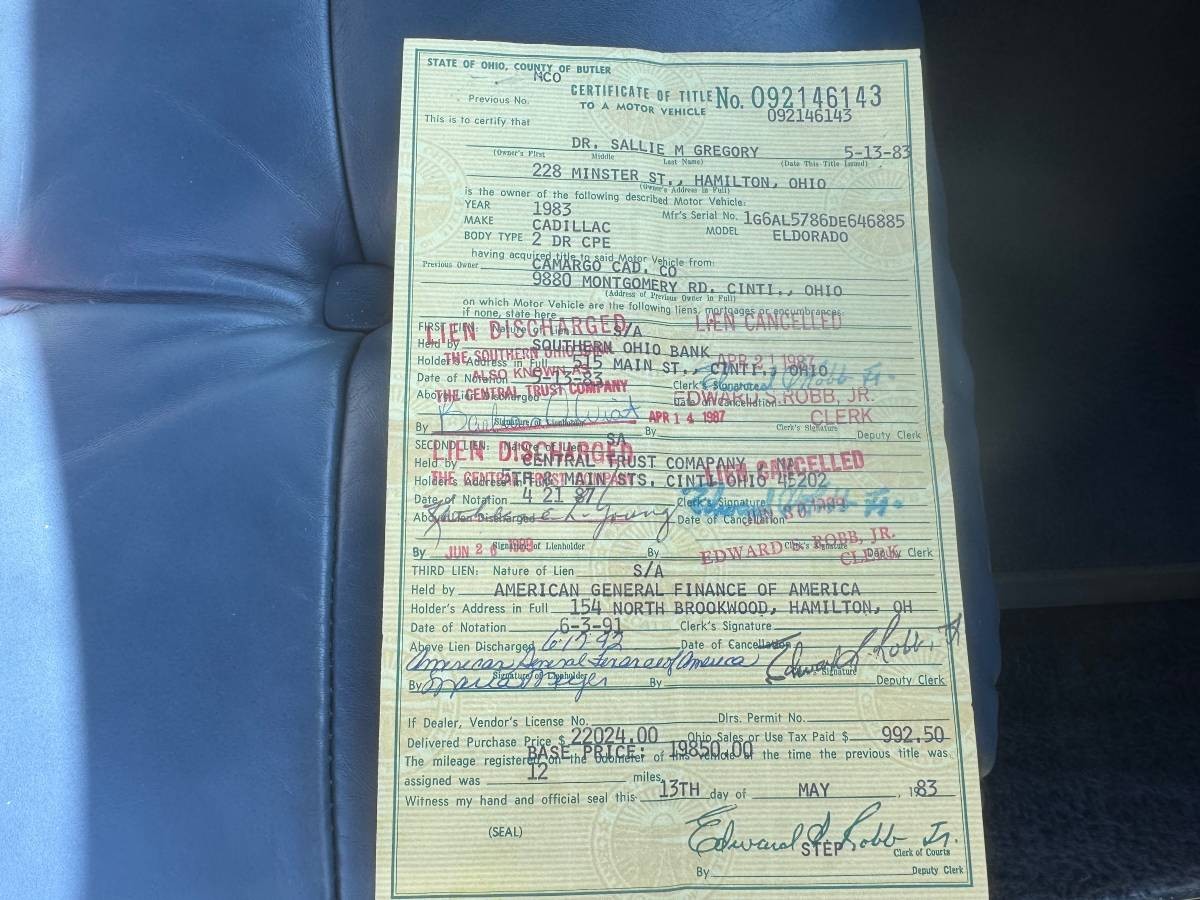 STATE OF OHIO, COUNTY OF BUTLER
MCO
CERTIFICATE OF TITLE No. 092146143
Previous No. TO A MOTOR VEHICLE 092146143
This is to certify that
DR. SALLIE M GREGORY 5-13-83
(Owner's First Middle Last Name) (Date This Title Issued)
228 MINSTER ST., HAMILTON, OHIO
(Owner's Address in Full)
is the owner of the following described Motor Vehicle:
YEAR 1983 Mfr's Serial No. 1G6AL5786DE646885
MAKE CADILLAC MODEL ELDORADO
BODY TYPE 2 DR CPE
having acquired title to said Motor Vehicle from:
Previous Owner CAMARGO CAD. CO
9880 MONTGOMERY RD. CINTI., OHIO
(Address of Previous Owner in Full)
on which Motor Vehicle are the following liens, mortgages or encumbrances:
if none, state here
FIRST LIEN: Nature of Lien S/A
LIEN DISCHARGED LIEN CANCELLED
Held by SOUTHERN OHIO BANK
THE SOUTHERN OHIO BANK APR 21 1987
Holder's Address in Full 515 MAIN ST., CINTI., OHIO
ALSO KNOWN AS
Date of Notation 5-13-83 Clerk's Signature Edward S. Robb Jr.
THE CENTRAL TRUST COMPANY EDWARD S. ROBB, JR.
Above Lien Discharged Date of Cancellation
APR 14 1987 CLERK
By Signature of Lienholder By Clerk's Signature Deputy Clerk
SECOND LIEN: Nature of Lien SA
LIEN DISCHARGED LIEN CANCELLED
Held by CENTRAL TRUST COMAPANY, NA
THE CENTRAL TRUST COMPANY
Holder's Address in Full 5TH & MAIN STS. CINTI OHIO 45202
Date of Notation 4 21 87 Clerk's Signature Edward S. Robb Jr.
Above Lien Discharged L. Young Date of Cancellation
JUN 26 1989 EDWARD S. ROBB, JR.
CLERK
By Signature of Lienholder By Clerk's Signature Deputy Clerk
THIRD LIEN: Nature of Lien S/A
Held by AMERICAN GENERAL FINANCE OF AMERICA
Holder's Address in Full 154 NORTH BROOKWOOD, HAMILTON, OH
Date of Notation 6-3-91 Clerk's Signature
Above Lien Discharged 6-17-92 Date of Cancellation
American General Finance of America Edward S. Robb, Jr
By Signature of Lienholder By Clerk's Signature Deputy Clerk
If Dealer, Vendor's License No. Dlrs. Permit No.
Delivered Purchase Price $ 22024.00 Ohio Sales or Use Tax Paid $ 992.50
BASE PRICE: 19850.00
The mileage registered on the odometer of this vehicle at the time the previous title was
assigned was 12 miles.
Witness my hand and official seal this 13TH day of MAY, 1983
(SEAL) Edward S. Robb Jr.
STEP Clerk of Courts
By Deputy Clerk